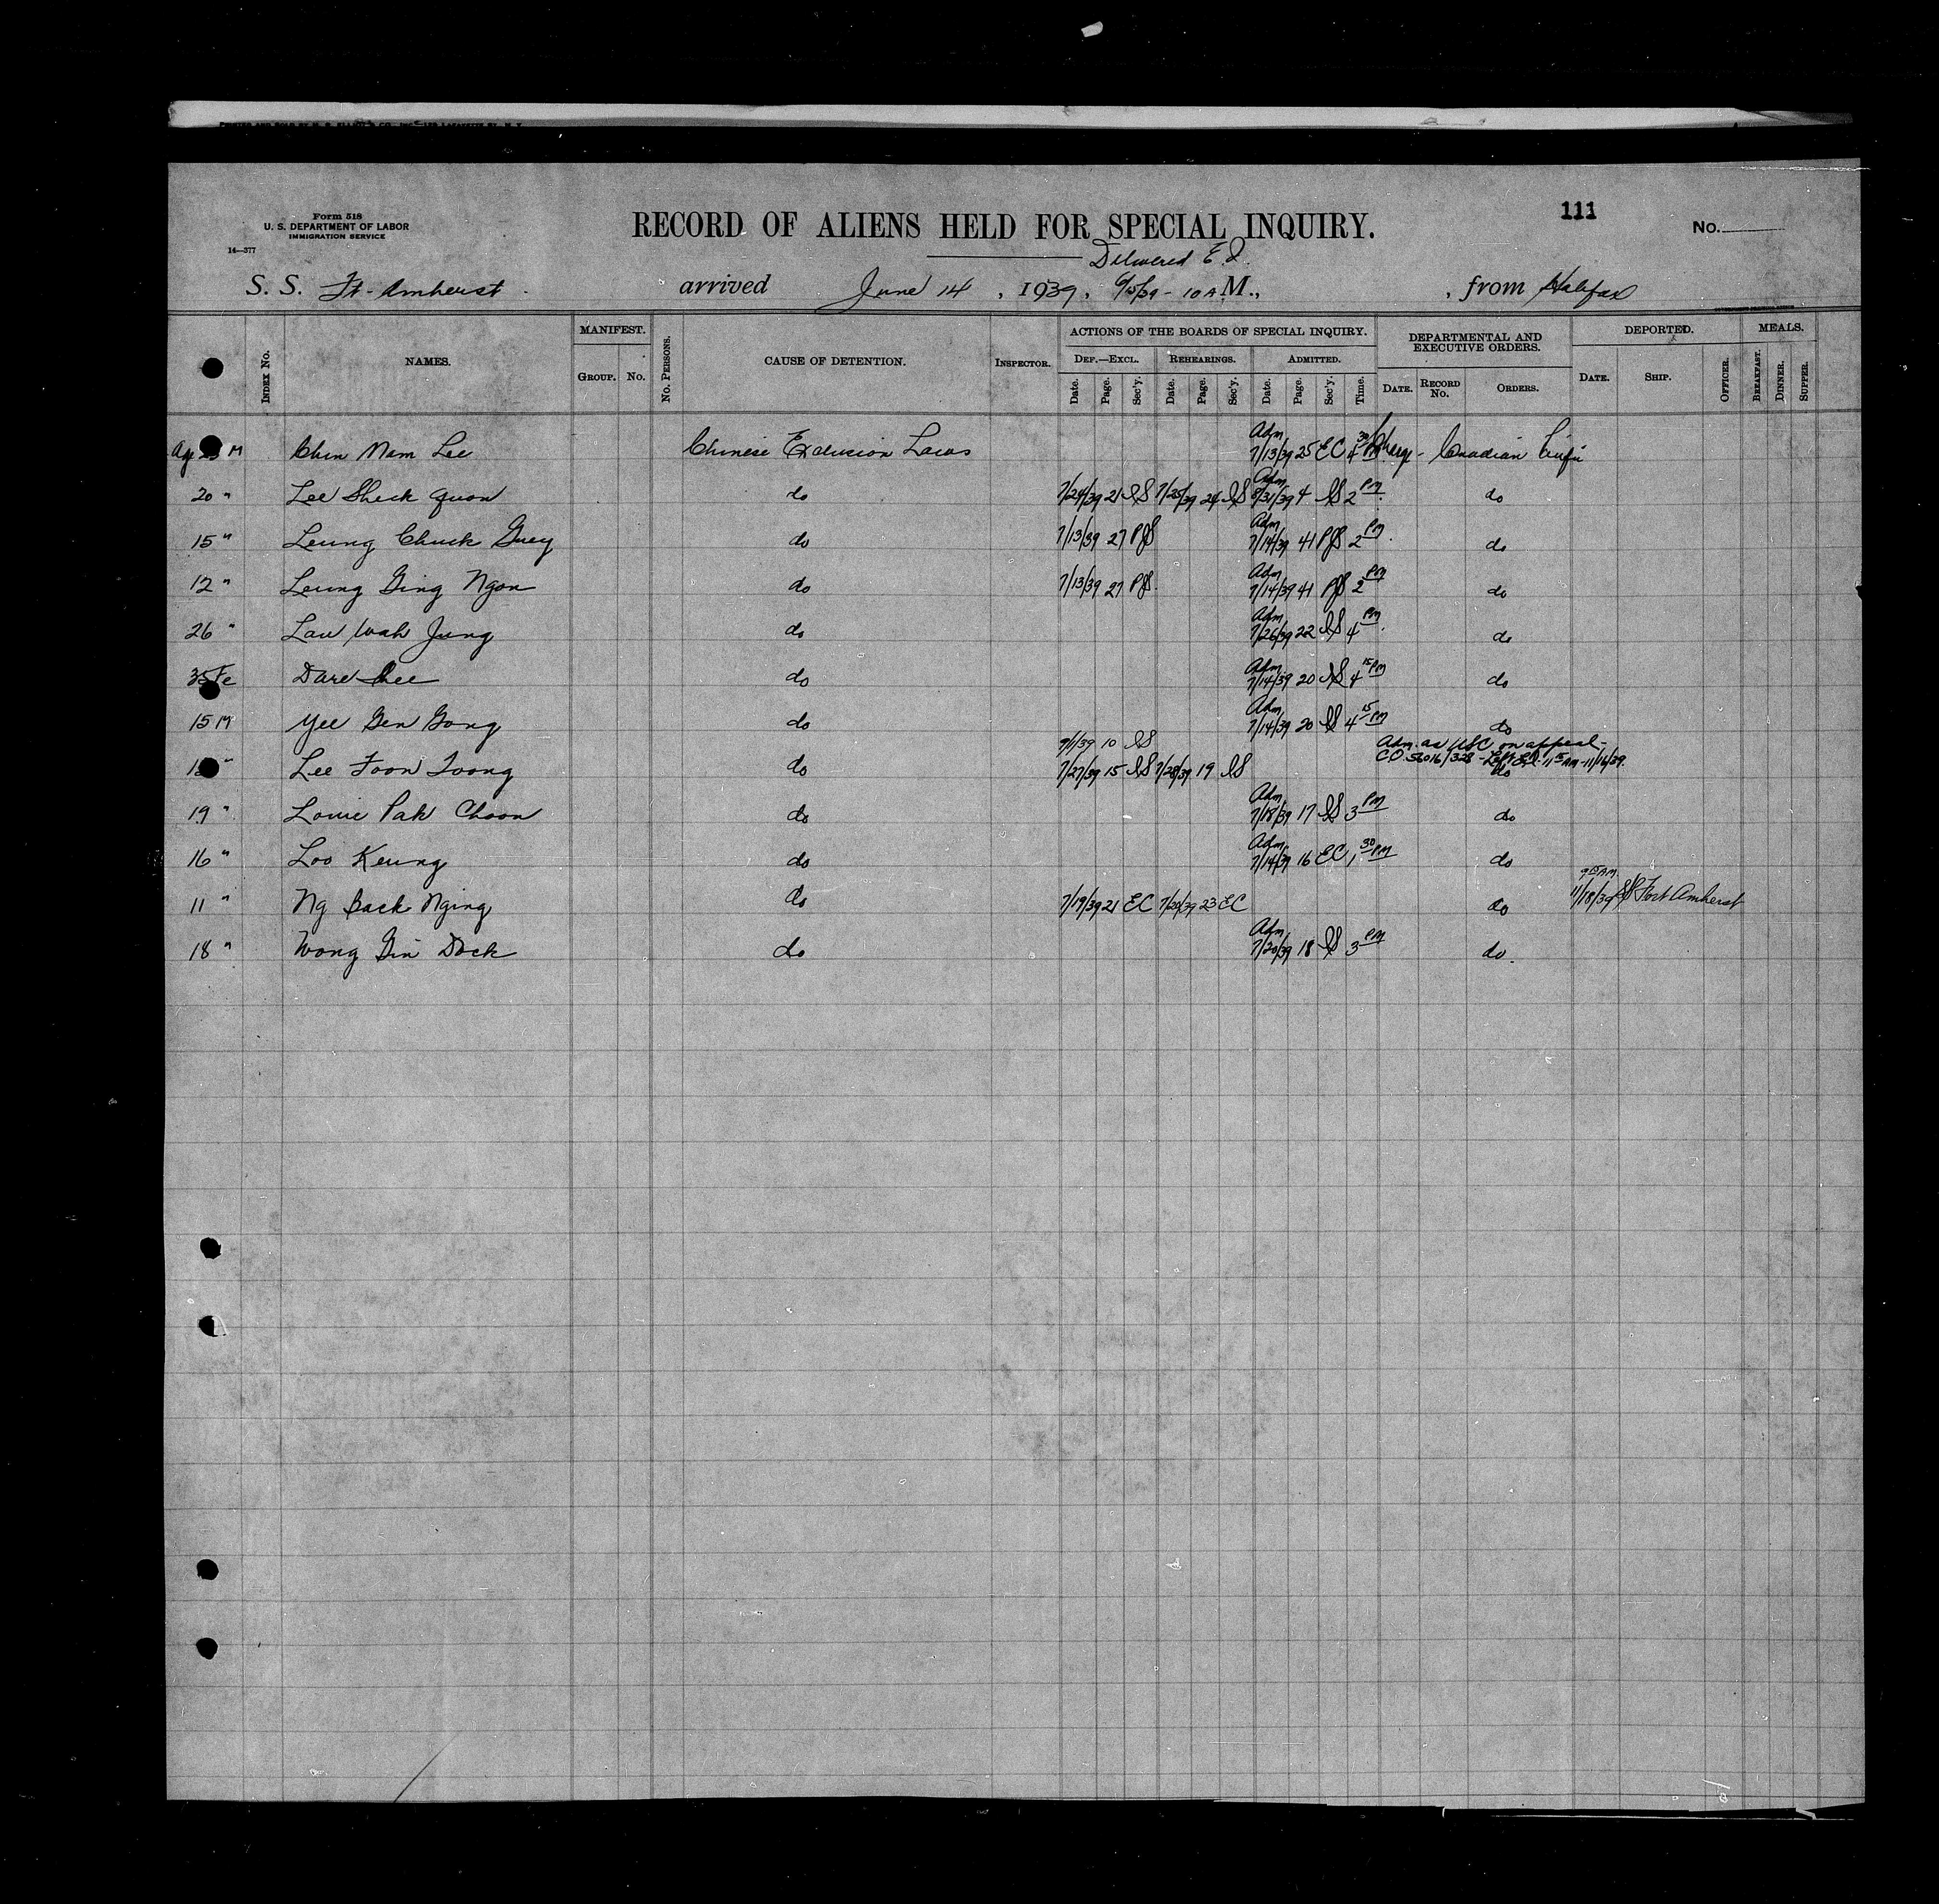 PRINTED AND SOLD BY
Form 518
U. S. DEPARTMENT OF LABOR
IMMIGRATION SERVICE
14—377
RECORD OF ALIENS HELD FOR SPECIAL INQUIRY.
111
No.
Delivered E. I.
S. S. Ft. Amherst arrived June 14, 1939, 6/15/39 - 10 A.M., from Halifax
INDEX No.
NAMES.
MANIFEST.
GROUP. No.
No. PERSONS.
CAUSE OF DETENTION.
INSPECTOR.
ACTIONS OF THE BOARDS OF SPECIAL INQUIRY.
DEF.—EXCL. REHEARINGS. ADMITTED.
Date. Page. Sec'y. Date. Page. Sec'y. Date. Page. Sec'y. Time.
DEPARTMENTAL AND EXECUTIVE ORDERS.
DATE. RECORD No. ORDERS.
DEPORTED.
DATE. SHIP. OFFICER.
MEALS.
BREAKFAST. DINNER. SUPPER.
Age M Chin Nam Lee Chinese Exclusion Laws Adm 7/13/39 25 EC 4 30 Charge - Canadian
20 " Lee Sheck Quon do 7/24/39 21 LS 7/25/39 24 LS Adm 8/31/39 4 LS 2 PM do
15 " Leung Chuck Guey do 7/13/39 27 PJS Adm 7/14/39 41 PJS 2 PM do
12 " Leung Ging Ngon do 7/13/39 27 PJS Adm 7/14/39 41 PJS 2 PM do
26 " Lau Wah Jung do Adm 7/26/39 22 LS 4 PM do
35 Fe Dare Shee do Adm 7/14/39 20 LS 4 15 PM do
15 M Yee Gen Gong do Adm 7/14/39 20 LS 4 15 PM do
9/1/39 10 LS Adm. as USC on appeal -
" Lee Foon Toong do 7/27/39 15 LS 7/28/39 19 LS C.O. 56016/328 - Left E.I. 11 15 AM - 11/16/39. do
19 " Louie Pak Choon do Adm 7/18/39 17 LS 3 PM do
16 " Loo Keung do Adm 7/14/39 16 EC 1 30 PM do
11 " Ng Back Nging do 7/19/39 21 EC 7/20/39 23 EC do 9 15 AM. 11/18/39 SS Fort Amherst
18 " Wong Gin Dock do Adm 7/20/39 18 LS 3 PM do.